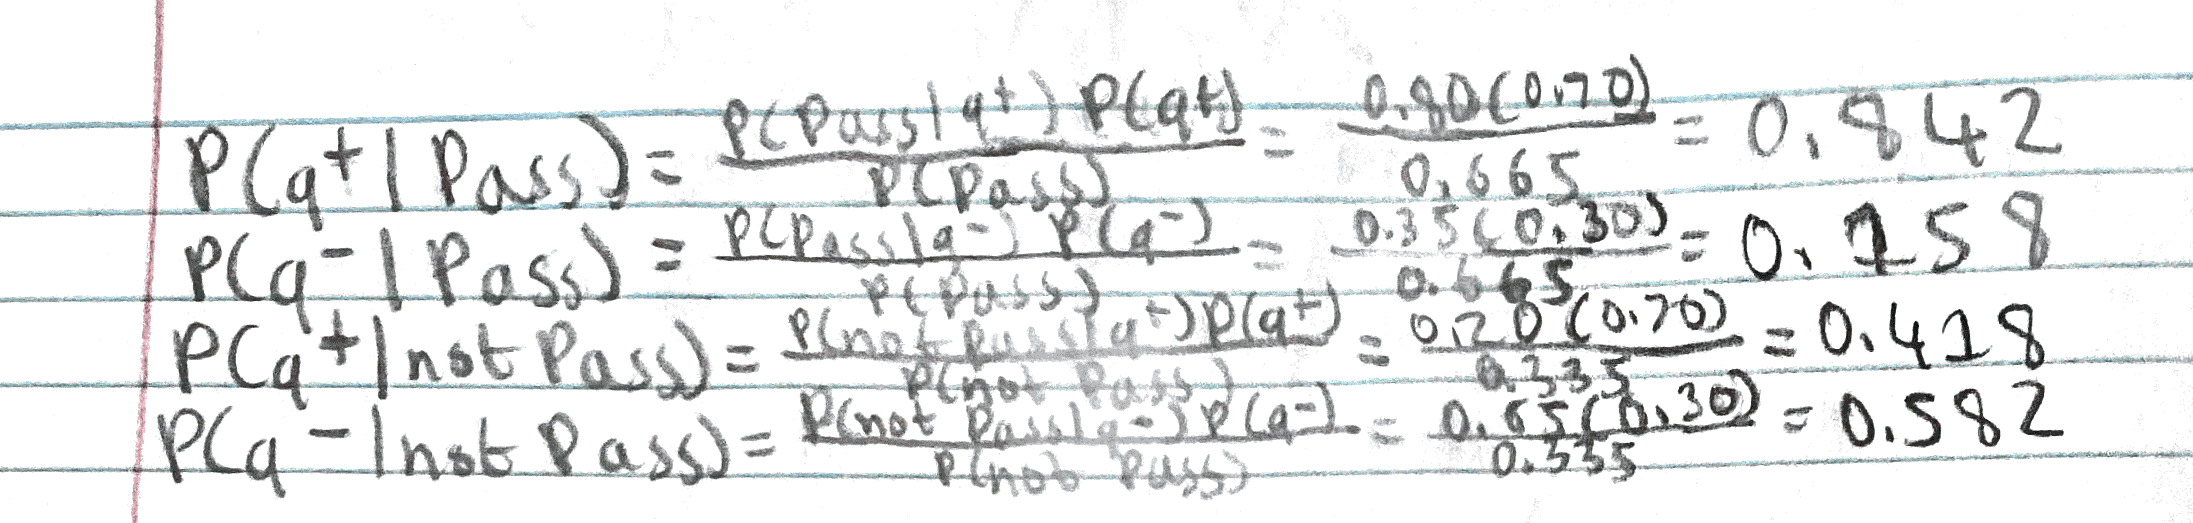 P(q+ | Pass) = P(Pass|q+) P(q+) / P(Pass) = 0.80(0.70) / 0.665 = 0.842
P(q- | Pass) = P(Pass|q-) P(q-) / P(Pass) = 0.35(0.30) / 0.665 = 0.158
P(q+ | not Pass) = P(not Pass|q+) P(q+) / P(not Pass) = 0.20(0.70) / 0.335 = 0.418
P(q- | not Pass) = P(not Pass|q-) P(q-) / P(not Pass) = 0.65(0.30) / 0.335 = 0.582